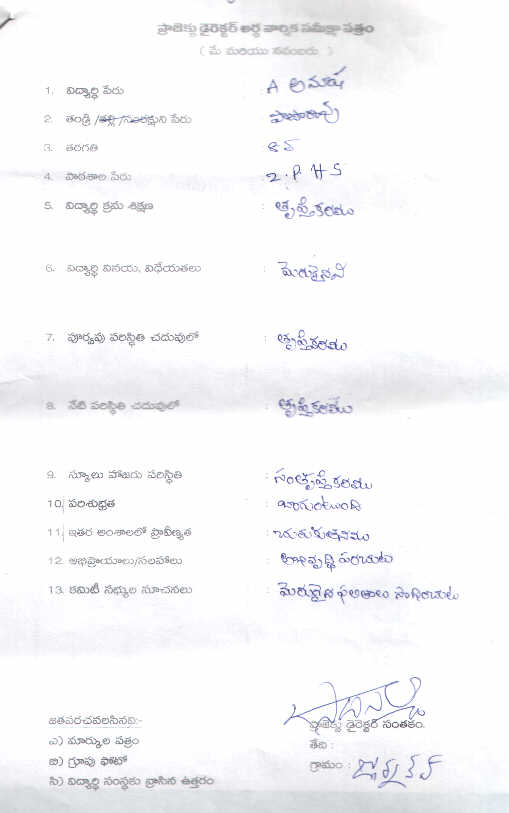 ప్రాజెక్టు డైరెక్టర్ అర్ధ వార్షిక సమీక్షా పత్రం
( మే మరియు నవంబరు )
1. విద్యార్థి పేరు : A అమూష
2. తండ్రి /తల్లి /సంరక్షుని పేరు : పాపారావు
3. తరగతి :
4. పాఠశాల పేరు : Z.P H S
5. విద్యార్థి క్రమ శిక్షణ : తృప్తికరము
6. విద్యార్థి వినయ, విధేయతలు : మెరుగైనవి
7. పూర్వపు పరిస్థితి చదువులో : తృప్తికరము
8. నేటి పరిస్థితి చదువులో : తృప్తికరము
9. స్కూలు హాజరు పరిస్థితి : సంతృప్తికరము
10. పరిశుభ్రత : బాగుంటుంది
11. ఇతర అంశాలలో ప్రావీణ్యత : చురుకుతనము
12. అభిప్రాయాలు/సలహాలు : అభివృద్ధి పరచుట
13. కమిటీ సభ్యుల సూచనలు : మెరుగైన ఫలితాలు సాధించుట
జతపరచవలసినవి:-
ఎ) మార్కుల పత్రం
బి) గ్రూపు ఫోటో
సి) విద్యార్థి సంస్థకు వ్రాసిన ఉత్తరం
ప్రాజెక్టు డైరెక్టర్ సంతకం.
తేది :
గ్రామం :